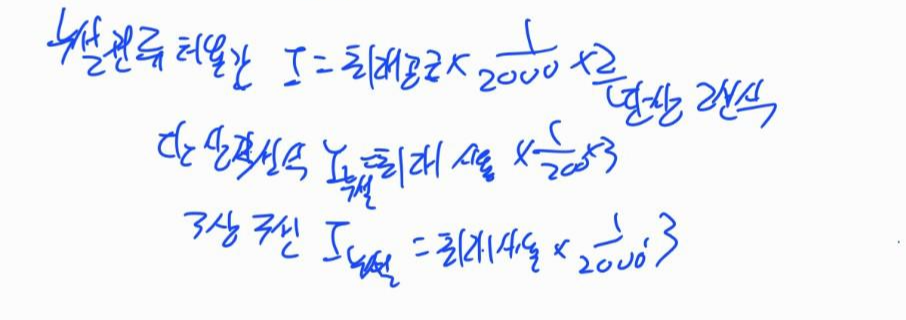 누설전류 허용값 I = 최대공급 × 1/2000 × 2 단상 2선식
단상 3선식 I누설 = 최대 사용 × 1/2000 × 3
3상 3선 I누설 = 최대사용 × 1/2000 3